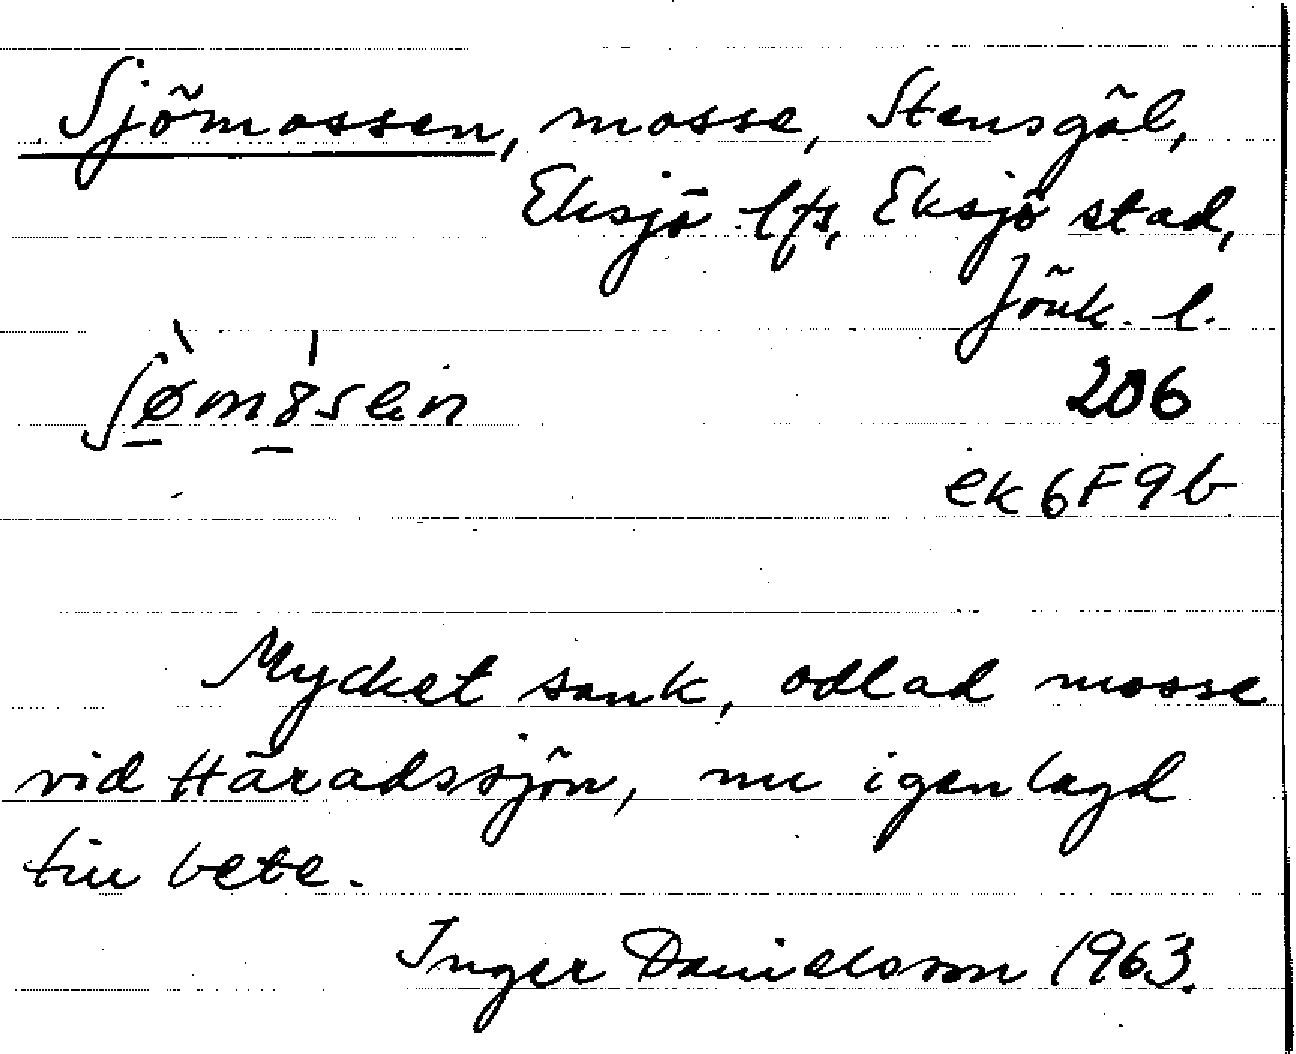 Sjömossen, mosse, Stensgöl,
Eksjö lfs, Eksjö stad,
Jönk. l.
206
ek 6F9b
Mycket sank, odlad mosse
vid Häradssjön, nu igenlagd
till bete.
Inger Danielsson 1963.